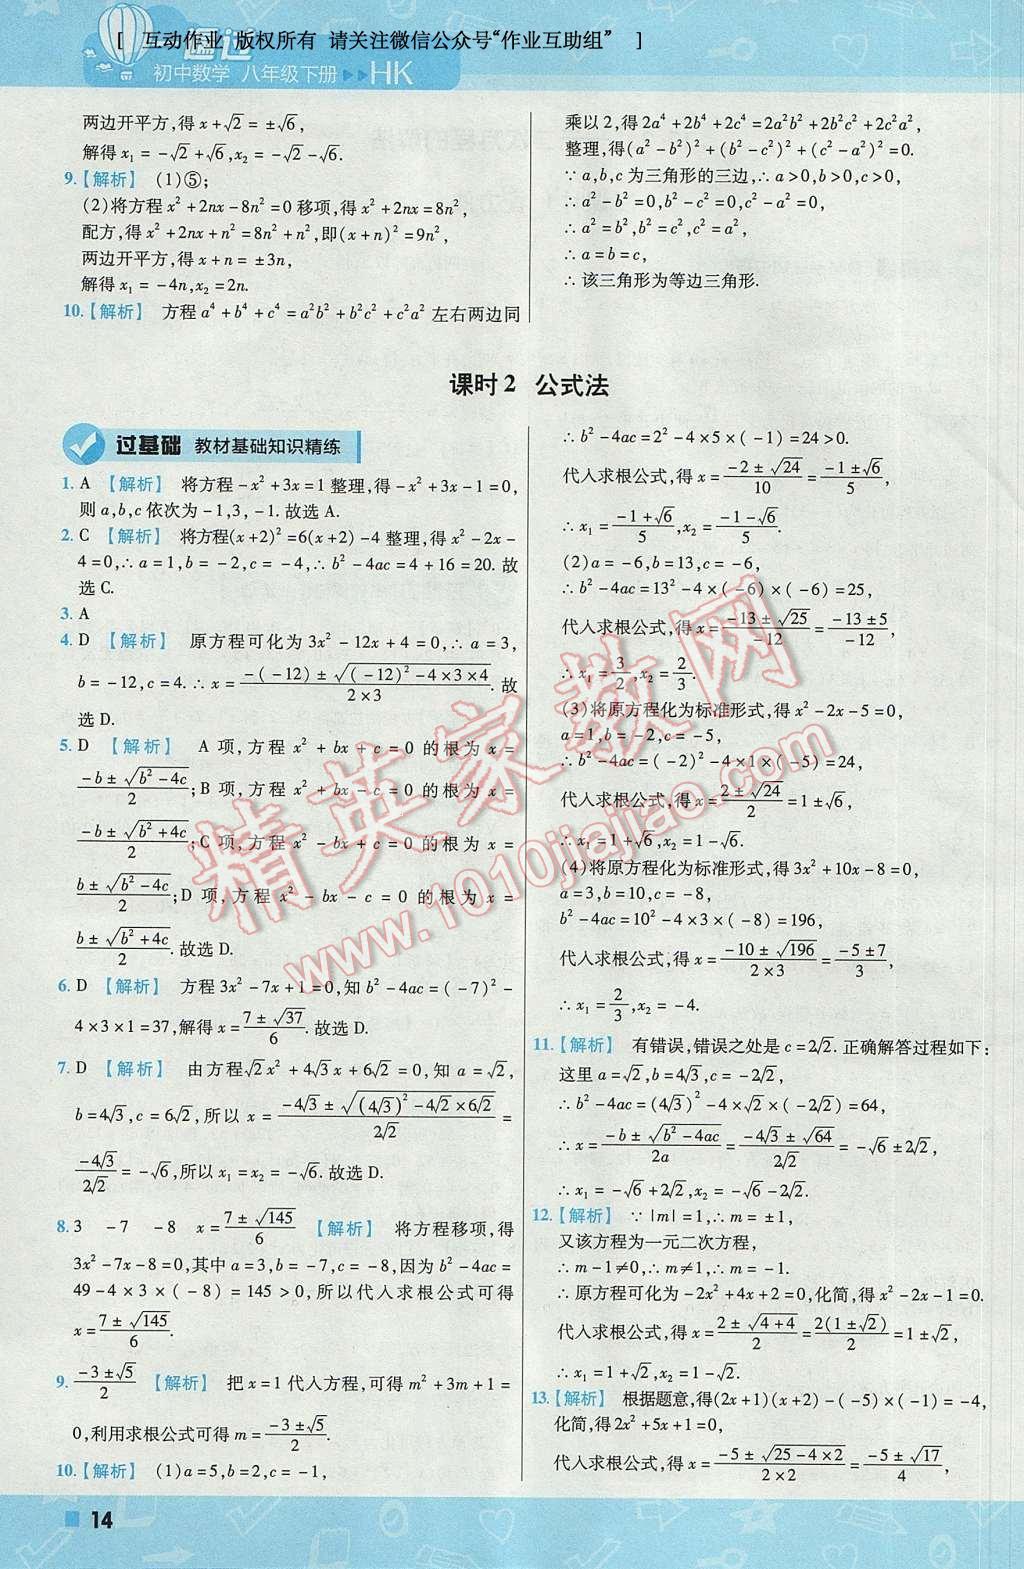 [ 互动作业 版权所有 请关注微信公众号“作业互助组” ]
一遍过
初中数学 八年级下册 ▶▶HK
两边开平方,得 x+√2=±√6,
解得 x₁=-√2+√6,x₂=-√2-√6.
9.【解析】 (1)⑤;
(2)将方程 x²+2nx-8n²=0 移项,得 x²+2nx=8n²,
配方,得 x²+2nx+n²=8n²+n²,即(x+n)²=9n²,
两边开平方,得 x+n=±3n,
解得 x₁=-4n,x₂=2n.
10.【解析】 方程 a⁴+b⁴+c⁴=a²b²+b²c²+c²a² 左右两边同
乘以 2,得 2a⁴+2b⁴+2c⁴=2a²b²+2b²c²+2c²a²,
整理,得(a²-b²)²+(b²-c²)²+(c²-a²)²=0.
∵ a,b,c 为三角形的三边,∴ a>0,b>0,c>0,
∴ a²-b²=0,b²-c²=0,c²-a²=0,
∴ a²=b²,b²=c²,c²=a²,
∴ a=b=c,
∴ 该三角形为等边三角形.
课时2 公式法
过基础 教材基础知识精练
1. A 【解析】 将方程-x²+3x=1 整理,得-x²+3x-1=0,
则 a,b,c 依次为-1,3,-1.故选 A.
2. C 【解析】 将方程(x+2)²=6(x+2)-4 整理,得 x²-2x-
4=0,∴ a=1,b=-2,c=-4,∴ b²-4ac=4+16=20. 故
选 C.
3. A
4. D 【解析】 原方程可化为 3x²-12x+4=0,∴ a=3,
b=-12,c=4.∴ x=(-(-12)±√((-12)²-4×3×4))/(2×3).故
选 D.
5. D 【解析】 A 项,方程 x²+bx+c=0 的根为 x=
(-b±√(b²-4c))/2;B 项,方程 x²+bx-c=0 的根为 x=
(-b±√(b²+4c))/2;C 项,方程 x²-bx+c=0 的根为 x=
(b±√(b²-4c))/2;D 项,方程 x²-bx-c=0 的根为 x=
(b±√(b²+4c))/2.故选 D.
6. D 【解析】 方程 3x²-7x+1=0,知 b²-4ac=(-7)²-
4×3×1=37,解得 x=(7±√37)/6.故选 D.
7. D 【解析】 由方程√2x²+4√3x+6√2=0,知 a=√2,
b=4√3,c=6√2,所以 x=(-4√3±√((4√3)²-4√2×6√2))/(2√2)=
(-4√3)/(2√2)=-√6,所以 x₁=x₂=-√6.故选 D.
8. 3 -7 -8 x=(7±√145)/6 【解析】 将方程移项,得
3x²-7x-8=0,其中 a=3,b=-7,c=-8,因为 b²-4ac=
49-4×3×(-8)=145>0,所以代入求根公式可得
x=(7±√145)/6.
9. (-3±√5)/2 【解析】 把 x=1 代入方程,可得 m²+3m+1=
0,利用求根公式可得 m=(-3±√5)/2.
10.【解析】 (1)a=5,b=2,c=-1,
∴ b²-4ac=2²-4×5×(-1)=24>0.
代入求根公式,得 x=(-2±√24)/10=(-1±√6)/5,
∴ x₁=(-1+√6)/5,x₂=(-1-√6)/5.
(2)a=-6,b=13,c=-6,
∴ b²-4ac=13²-4×(-6)×(-6)=25,
代入求根公式,得 x=(-13±√25)/(-12)=(-13±5)/(-12),
∴ x₁=3/2,x₂=2/3.
(3)将原方程化为标准形式,得 x²-2x-5=0,
a=1,b=-2,c=-5,
∴ b²-4ac=(-2)²-4×1×(-5)=24,
代入求根公式,得 x=(2±√24)/2=1±√6,
∴ x₁=1+√6,x₂=1-√6.
(4)将原方程化为标准形式,得 3x²+10x-8=0,
a=3,b=10,c=-8,
b²-4ac=10²-4×3×(-8)=196,
代入求根公式,得 x=(-10±√196)/(2×3)=(-5±7)/3,
∴ x₁=2/3,x₂=-4.
11.【解析】 有错误,错误之处是 c=2√2.正确解答过程如下:
这里 a=√2,b=4√3,c=-2√2,
∴ b²-4ac=(4√3)²-4×√2×(-2√2)=64,
∴ x=(-b±√(b²-4ac))/2a=(-4√3±√64)/(2√2)=-√6±2√2,
∴ x₁=-√6+2√2,x₂=-√6-2√2.
12.【解析】 ∵ |m|=1,∴ m=±1,
又该方程为一元二次方程,
∴ m-1≠0,∴ m=-1.
∴ 原方程可化为-2x²+4x+2=0,化简,得 x²-2x-1=0.
代入求根公式,得 x=(2±√(4+4))/2=(2(1±√2))/2=1±√2,
∴ x₁=1+√2,x₂=1-√2.
13.【解析】 根据题意,得(2x+1)(x+2)-(-5)×(-1)=-4,
化简,得 2x²+5x+1=0,
代入求根公式,得 x=(-5±√(25-4×2))/(2×2)=(-5±√17)/4,
精英家教网
www.1010jiajiao.com
14